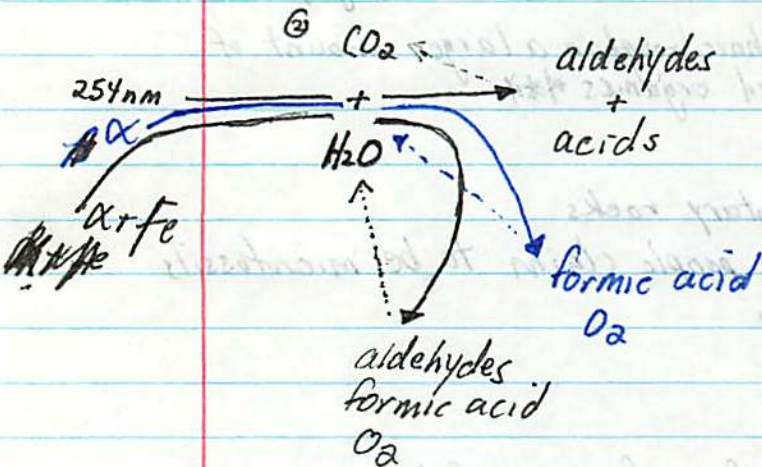 ② CO2
aldehydes
+
acids
254nm
+
α
H2O
α + Fe
formic acid
O2
aldehydes
formic acid
O2